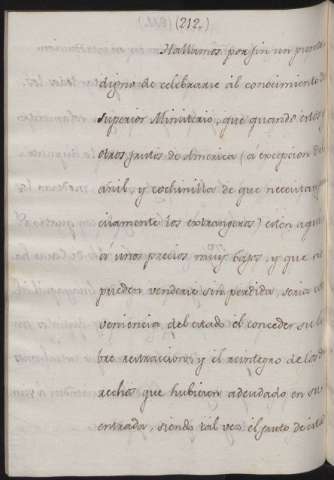 (212.)
Hallamos por fin un punto
digno de celebrarse al conocimiento d
Superior Ministerio, que quando estos y
otros frutos de America (a excepcion del
añil, y cochinilla de que necesitan
cisamente los extrangeros) esten aqui
á unos precios muy bajos, y que n
pueden venderse sin perdida, seria co
veniencia del estado el conceder su li
bre extraccion, y el reintegro de los d
rechos que hubieren adeudado en su
entrada, siendo tal vez el fruto de